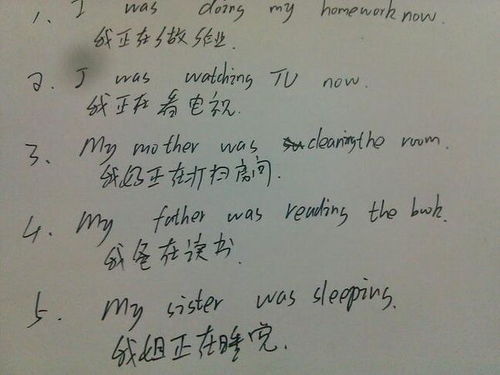 1. I was doing my homework now.
我正在做作业.
2. I was watching TV now.
我正在看电视.
3. My mother was cleaning the room.
我妈正在打扫房间.
4. My father was reading the book.
我爸在读书.
5. My sister was sleeping.
我姐正在睡觉.